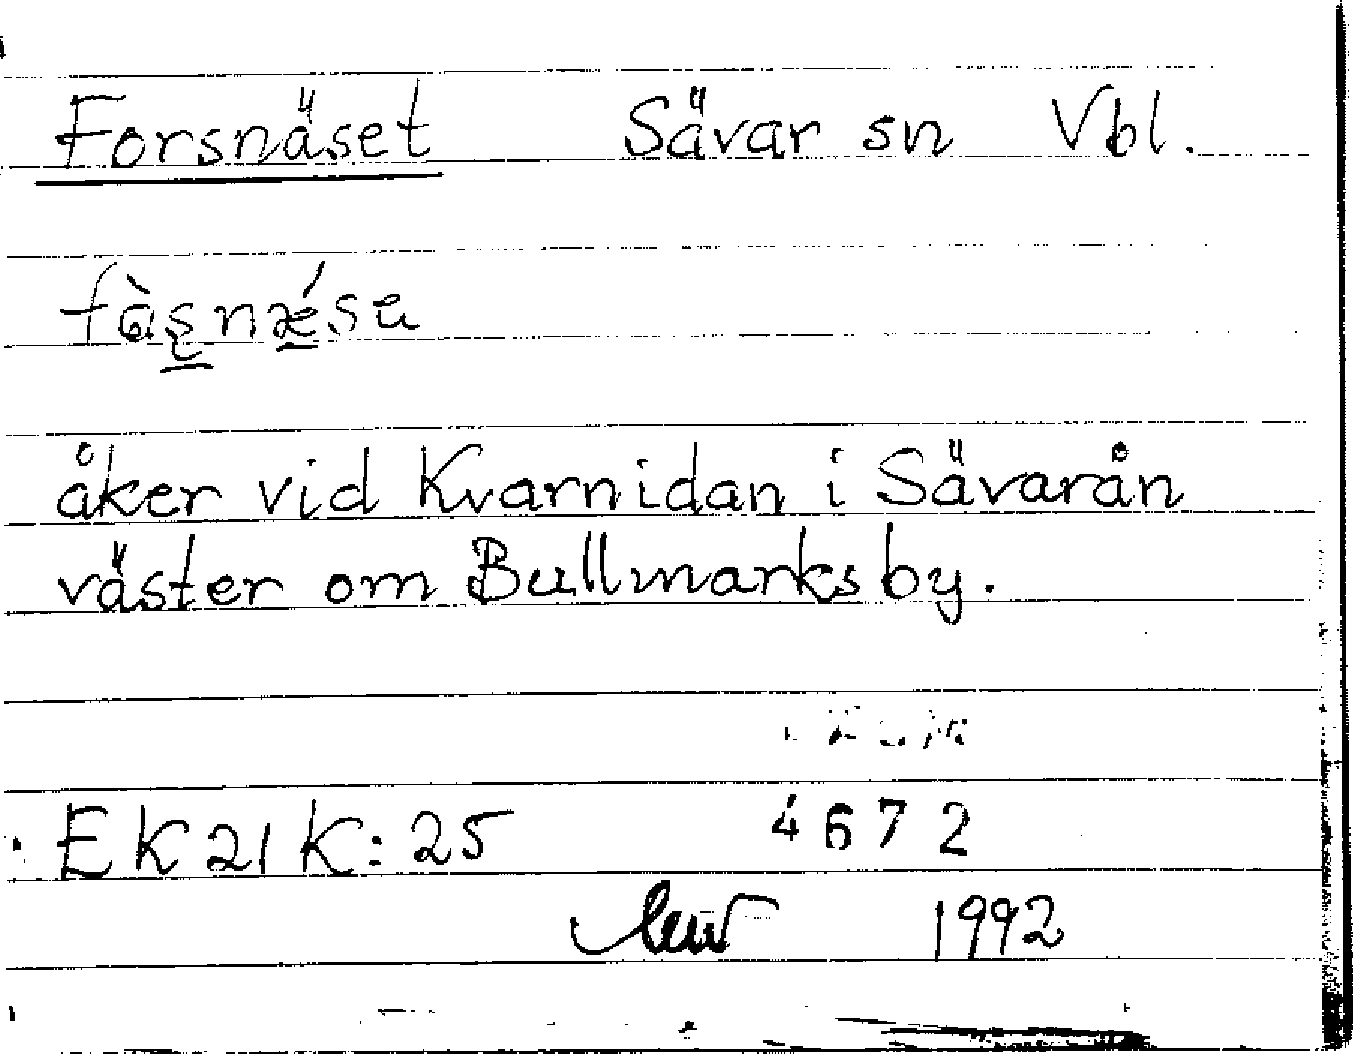 Forsnäset Sävar sn Vbl.
åker vid Kvarnidan i Sävarån
väster om Bullmarks by.
EK21K:25 4672
1992